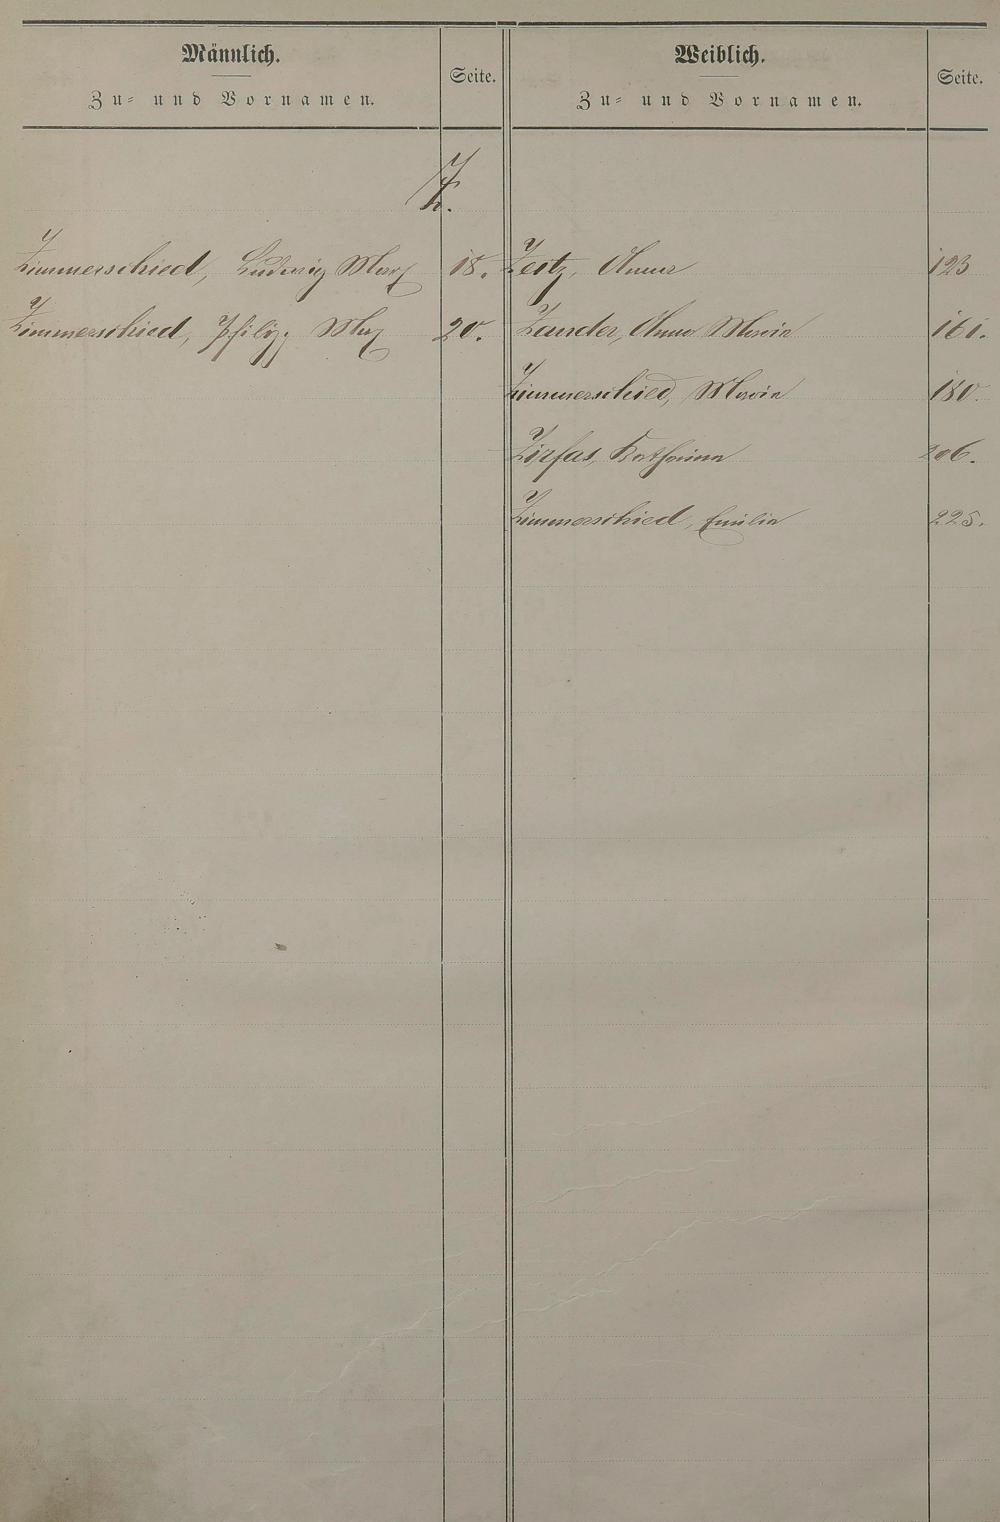 Männlich.
Zu- und Vornamen.
Seite.
Weiblich.
Zu- und Vornamen.
Seite.
Z.
Zimmerschied, Ludwig Max 18.
Zimmerschied, Philipp Max 20.
Zeitz, Anna 123
Zander, Anna Maria 161.
Zimmerschied, Maria 180.
Zirfas, Katharina 206.
Zimmerschied, Emilia 225.